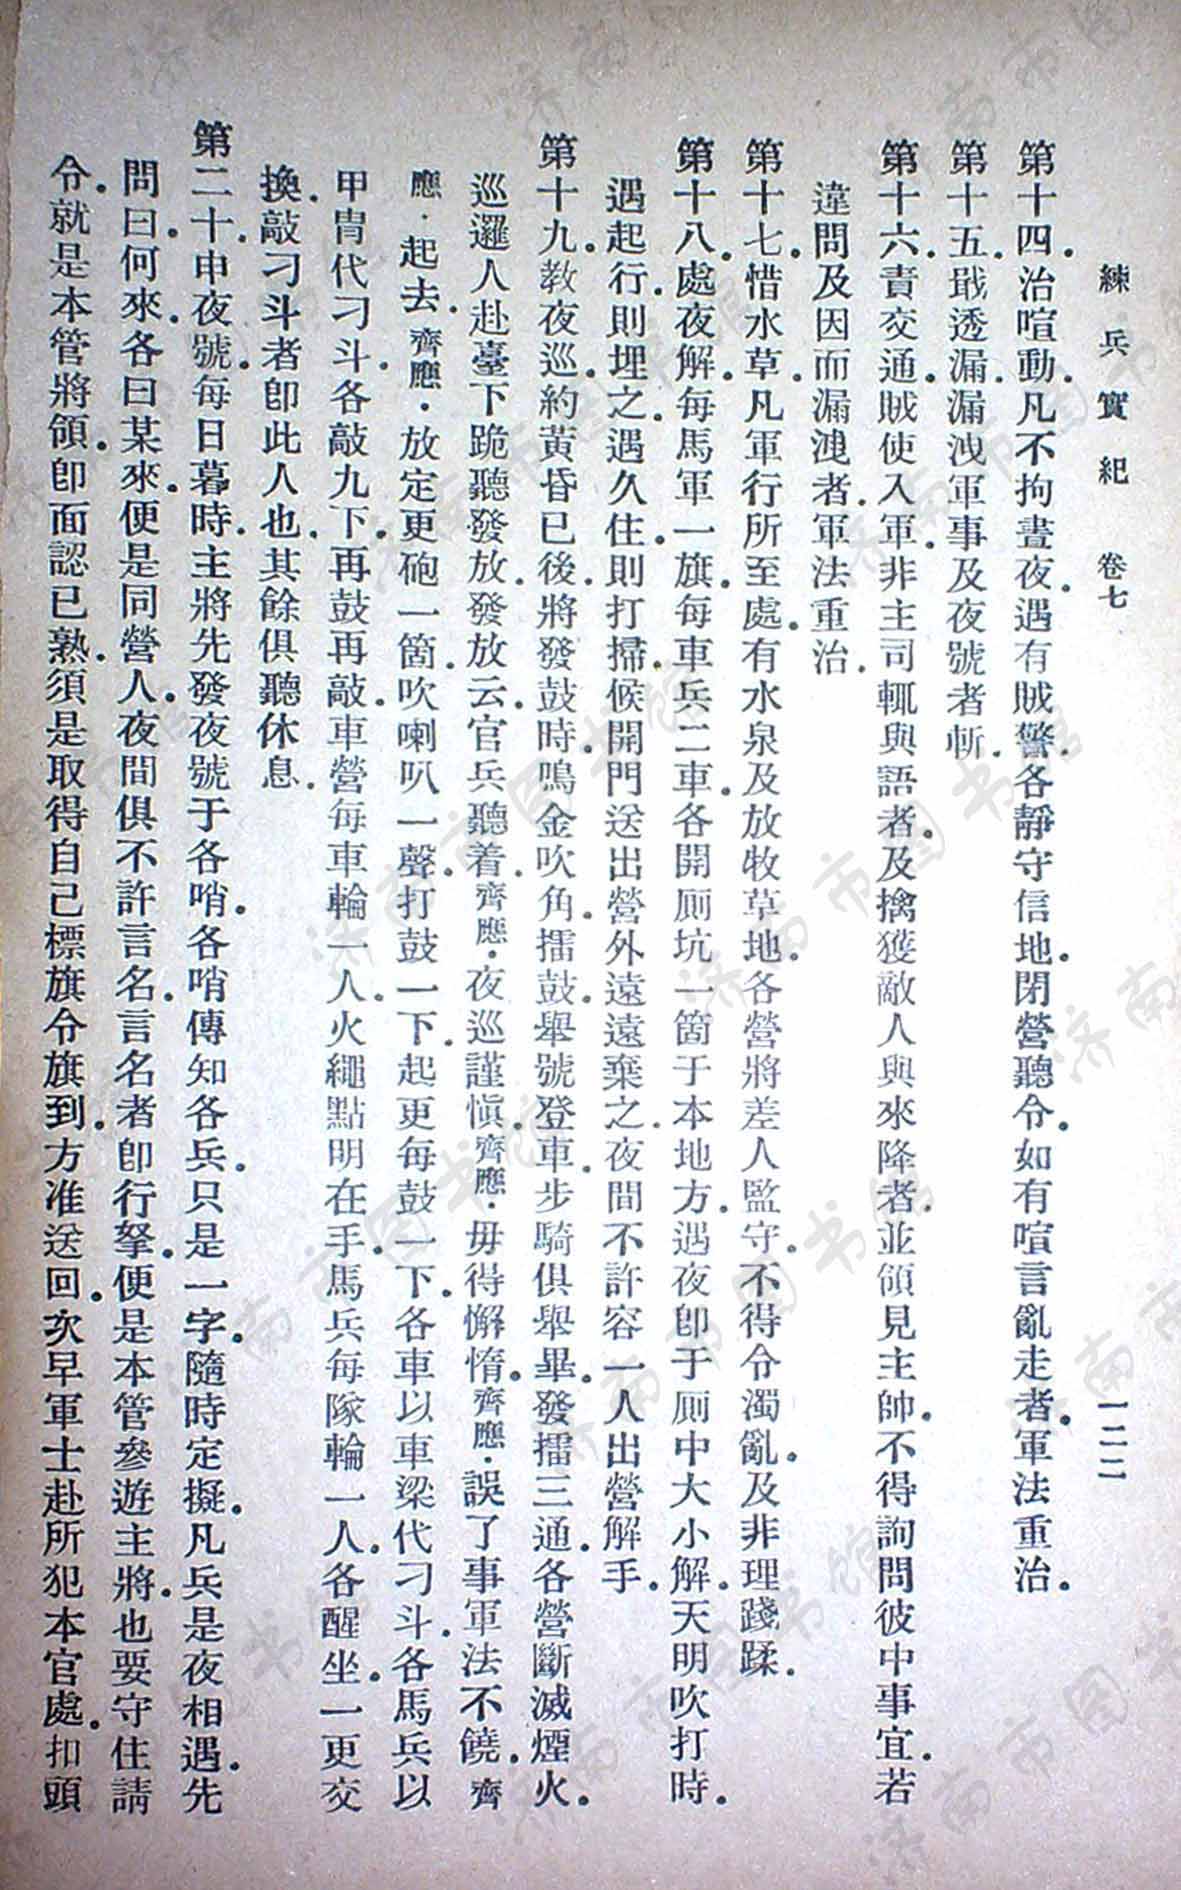 練兵實紀 卷七 一二二
第十四.治喧動.凡不拘晝夜.遇有賊警.各靜守信地.閉營聽令.如有喧言亂走者.軍法重治.
第十五.戢透漏.漏洩軍事及夜號者斬.
第十六.責交通.賊使入軍.非主司輒與語者.及擒獲敵人與來降者.並領見主帥.不得詢問彼中事宜.若
違問及因而漏洩者.軍法重治.
第十七.惜水草.凡軍行所至處.有水泉及放牧草地.各營將差人監守.不得令濁亂.及非理踐蹂.
第十八.處夜解.每馬軍一旗.每車兵二車.各開厠坑一箇于本地方.遇夜卽于厠中大小解.天明吹打時.
遇起行.則埋之.遇久住.則打掃.候開門送出營外遠遠棄之.夜間不許容一人出營解手.
第十九.教夜巡.約黃昏已後.將發鼓時.鳴金吹角.擂鼓.舉號登車.步騎俱舉畢.發擂三通.各營斷滅煙火.
巡邏人赴臺下跪聽發放.發放云.官兵聽着.齊應.夜巡謹愼.齊應.毋得懈惰.齊應.誤了事軍法不饒.齊
應.起去.齊應.放定更砲一箇.吹喇叭一聲.打鼓一下.起更每鼓一下.各車以車梁代刁斗.各馬兵以
甲胄代刁斗.各敲九下.再鼓再敲.車營每車輪一人.火繩點明在手.馬兵每隊輪一人.各醒坐.一更交
換.敲刁斗者卽此人也.其餘俱聽休息.
第二十.申夜號.每日暮時.主將先發夜號于各哨.各哨傳知各兵.只是一字.隨時定擬.凡兵是夜相遇.先
問曰.何來.各曰某來.便是同營人.夜間俱不許言名.言名者卽行拏.便是本管參遊主將.也要守住請
令.就是本管將領.卽面認已熟.須是取得自己標旗令旗到.方准送回.次早軍士赴所犯本官處.扣頭